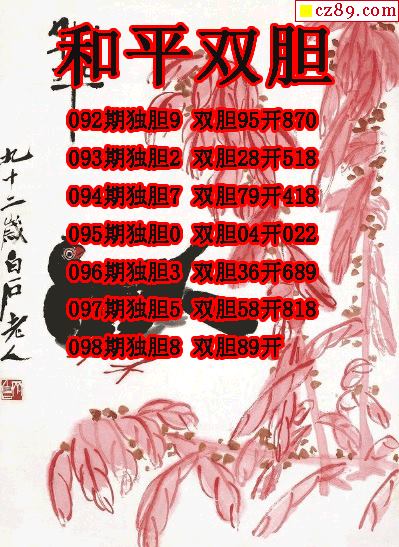 cz89.com
和平双胆
092期独胆9 双胆95开870
093期独胆2 双胆28开518
094期独胆7 双胆79开418
095期独胆0 双胆04开022
096期独胆3 双胆36开689
097期独胆5 双胆58开818
098期独胆8 双胆89开
九十二岁白石老人